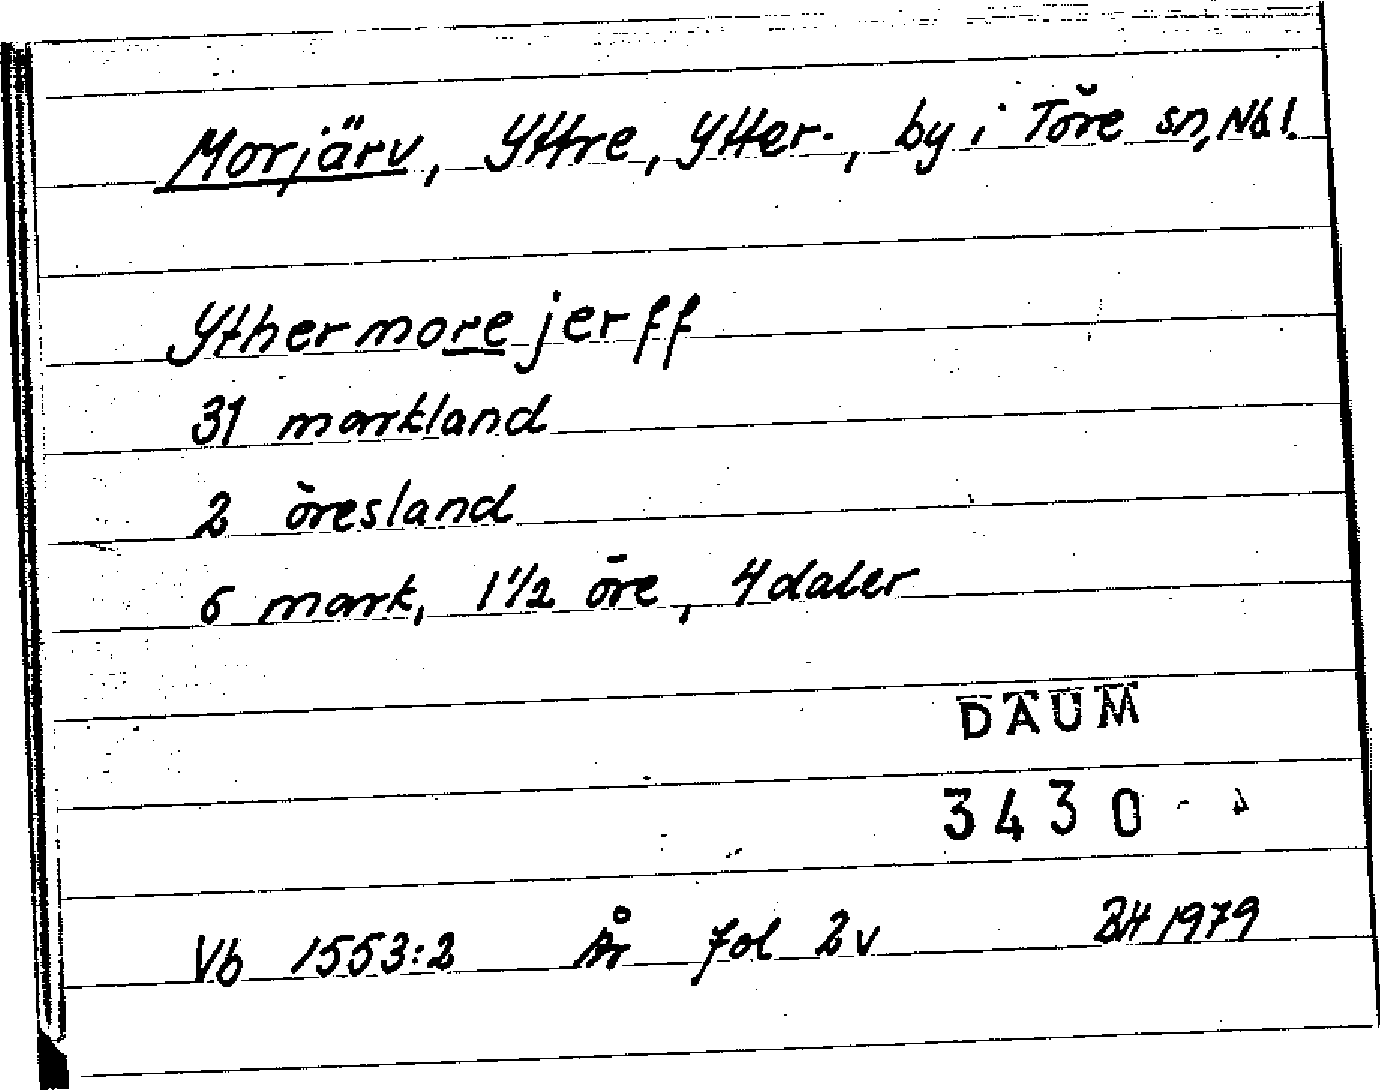 Morjärv, Yttre, Ytter-, by i Töre sn, Nbl.
Ythermorejerff
31 markland
2 öresland
6 mark, 1 1/2 öre, 4 daler
DAUM
3430
Vb 1553:2 År fol 2v BH 1979